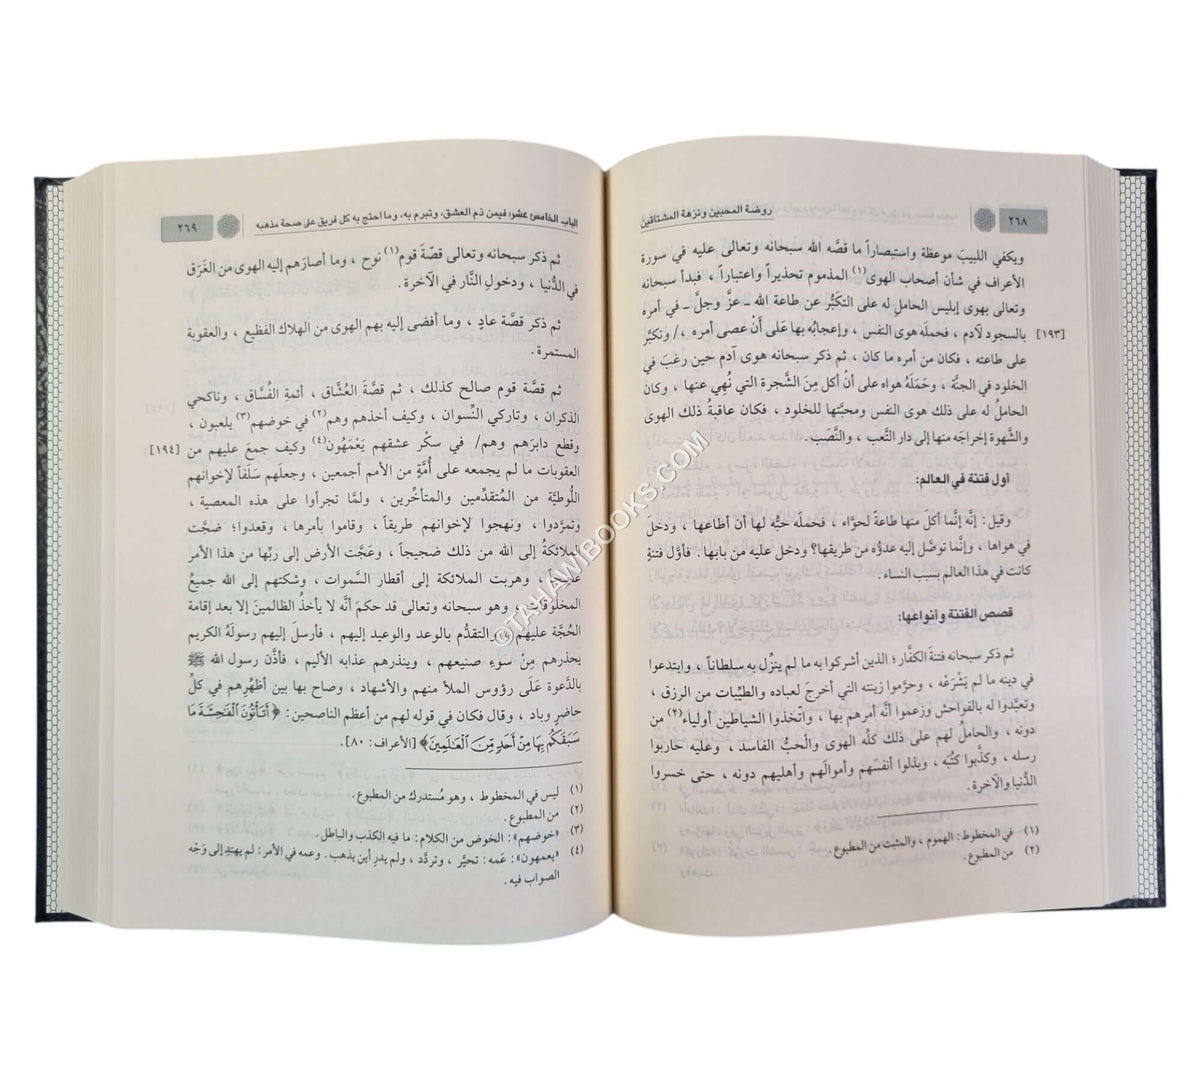 ٢٦٨ روضة المحبين ونزهة المشتاقين
ويكفي اللبيبَ موعظة واستبصاراً ما قصَّه الله سبحانه وتعالى عليه في سورة
الأعراف في شأن أصحاب الهوى(١) المذموم تحذيراً واعتباراً ، فبدأ سبحانه
وتعالى بهوى إبليس الحاملِ له على التكبُّر عن طاعة الله ـ عزَّ وجلَّ ـ في أمره
بالسجود لآدم ، فحملَه هوى النفس ، وإعجابُه بها على أَنْ عصى أمره ،/ وتكبَّر [١٩٣]
على طاعته ، فكان من أمره ما كان ، ثم ذكر سبحانه هوى آدم حين رغبَ في
الخلود في الجنَّة ، وحَمَلَهُ هواه على أنْ أكل مِنَ الشَّجرة التي نُهِيَ عنها ، وكان
الحاملُ له على ذلك هوى النفس ومحبَّتها للخلود ، فكان عاقبةُ ذلك الهوى
والشَّهوة إخراجَه منها إلى دار التَّعب ، والنَّصَب .
أول فتنة في العالم:
وقيل : إنَّه إنَّما أكلَ منها طاعةً لحوَّاء ، فحملَه حبُّه لها أن أطاعها ، ودخلَ
في هواها ، وإنَّما توصَّل إليه عدوُّه من طريقها؟ ودخل عليه من بابها . فأوَّل فتنةٍ
كانت في هذا العالم بسبب النساء .
قصص الفتنة وأنواعها:
ثم ذكر سبحانه فتنةَ الكفَّار؛ الذين أشركوا به ما لم ينزِّل به سلطاناً ، وابتدعوا
في دينه ما لم يَشْرَعْه ، وحرَّموا زينته التي أخرجَ لعباده والطيِّبات من الرزق ،
وتعبَّدوا له بالفواحش وزعموا أنَّه أمرهم بها ، واتّخذوا الشياطين أولياء(٢) من
دونه ، والحاملُ لهم على ذلك كلِّه الهوى والحبُّ الفاسد ، وعليه حاربوا
رسله ، وكذَّبوا كتُبَه ، وبذلوا أنفسَهم وأموالَهم وأهليهم دونه ، حتى خسروا
الدُّنيا والآخرة .
(١) في المخطوط: الهموم ، والمثبت من المطبوع .
(٢) من المطبوع .
الباب الخامس عشر: فيمن ذم العشق، وتبرم به، وما احتج به كل فريق على صحة مذهبه ٢٦٩
ثم ذكر سبحانه وتعالى قصّةَ قوم(١) نوح ، وما أصارَهم إليه الهوى من الغَرَق
في الدُّنيا ، ودخولِ النَّار في الآخرة .
ثم ذكر قصَّة عادٍ ، وما أفضى إليه بهم الهوى من الهلاك الفظيع ، والعقوبة
المستمرة .
ثم قصَّة قوم صالح كذلك ، ثم قصَّةَ العُشَّاق ، أئمةِ الفُسَّاق ، وناكحي
الذكران ، وتاركي النِّسوان ، وكيف أخذهم وهم(٢) في خوضهم(٣) يلعبون ،
وقطع دابرَهم وهم/ في سكْر عشقهم يَعْمَهُون(٤) وكيف جمعَ عليهم من [١٩٤]
العقوبات ما لم يجمعه على أُمَّةٍ من الأمم أجمعين ، وجعلَهم سَلَفاً لإخوانهم
اللُّوطيَّة من المُتقدِّمين والمتأخِّرين ، ولمَّا تجرأوا على هذه المعصية ،
وتمرَّدوا ، ونهجوا لإخوانهم طريقاً ، وقاموا بأمرها ، وقعدوا؛ ضجَّت
الملائكةُ إلى الله من ذلك ضجيجاً ، وعَجَّت الأرض إلى ربِّها من هذا الأمر
عجيجاً ، وهربت الملائكة إلى أقطار السَّموات ، وشكتهم إلى الله جميعُ
المخلوقات ، وهو سبحانه وتعالى قد حكمَ أنَّه لا يأخذُ الظالمين إلا بعد إقامة
الحُجَّة عليهم ، والتقدُّم بالوعد والوعيد إليهم ، فأرسلَ إليهم رسولَهُ الكريم
يحذرهم مِنْ سوءِ صنيعهم ، وينذرهم عذابه الأليم ، فأذَّن رسول الله ﷺ
بالدَّعوة عَلَى رؤوس الملأ منهم والأشهاد ، وصاح بها بين أظهُرِهم في كلِّ
حاضرٍ وباد ، وقال فكان في قوله لهم من أعظم الناصحين : ﴿ أَتَأْتُونَ ٱلْفَٰحِشَةَ مَا
سَبَقَكُم بِهَا مِنْ أَحَدٍ مِّنَ ٱلْعَٰلَمِينَ﴾ [الأعراف: ٨٠].
(١) ليس في المخطوط ، وهو مُستدرك من المطبوع .
(٢) من المطبوع .
(٣) «خوضهم»: الخوض من الكلام: ما فيه الكذب والباطل .
(٤) «يعمهون»: عَمه: تحيَّر ، وتردَّد ، ولم يدرِ أين يذهب . وعمه في الأمر: لم يهتدِ إلى وَجْه
الصواب فيه .
©TAHAWIBOOKS.COM